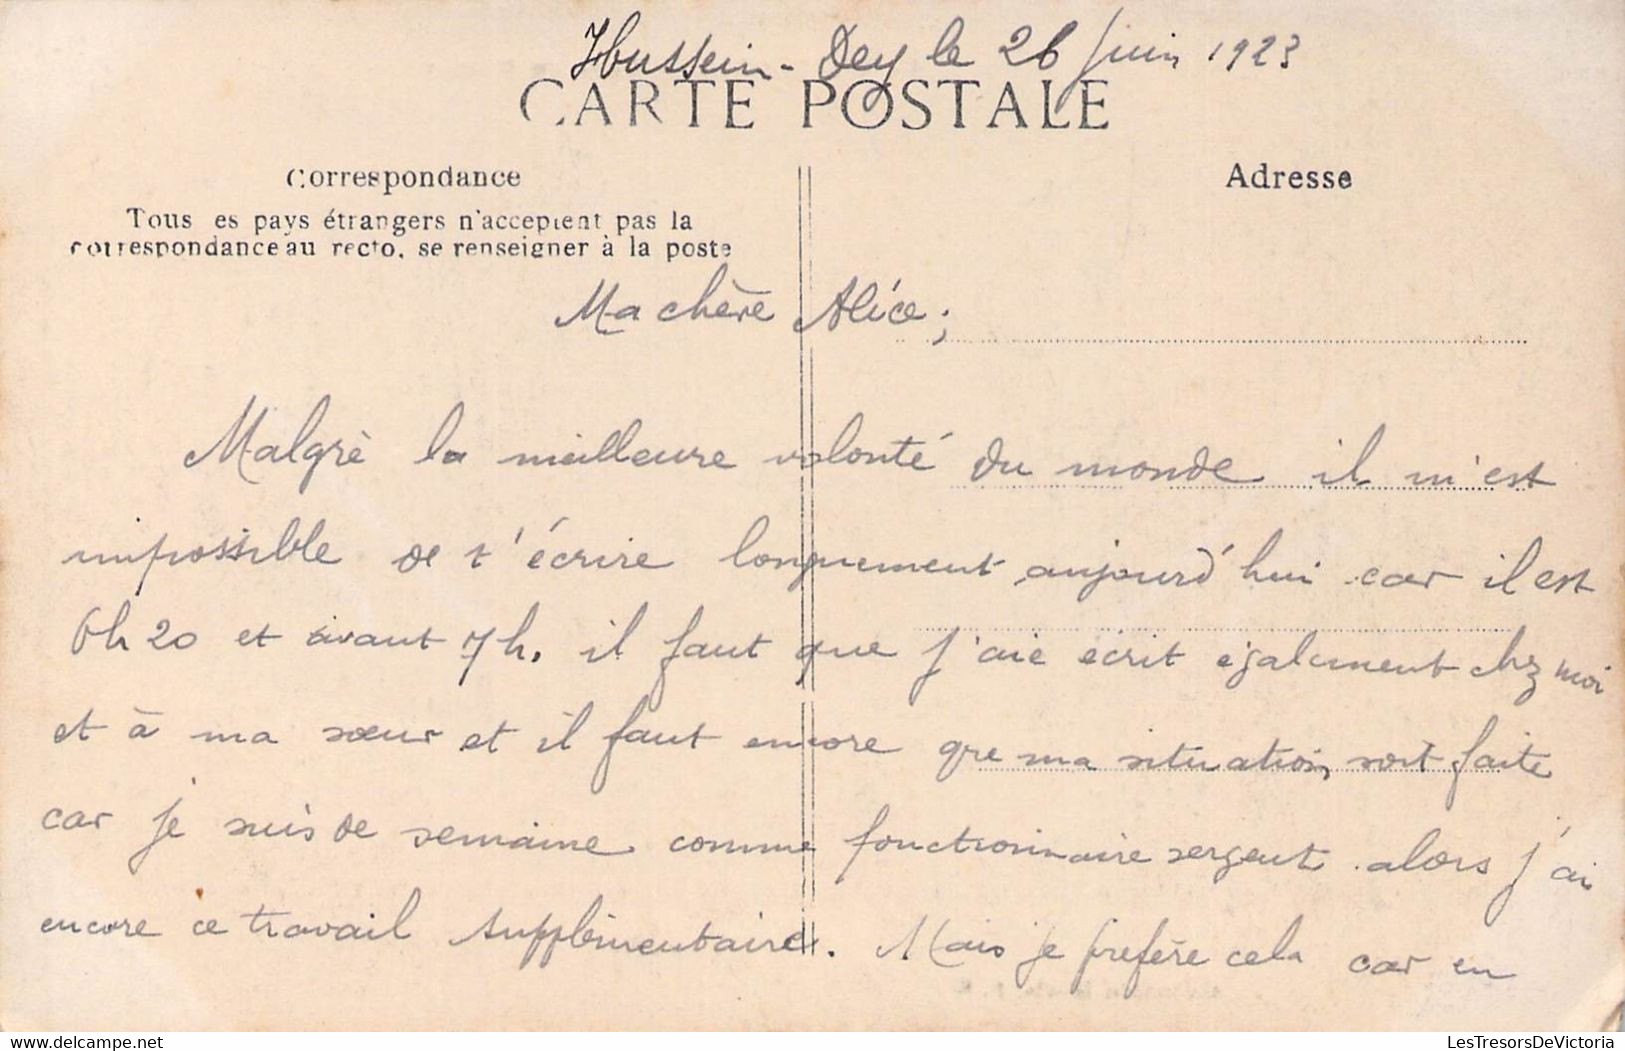 Hussein-Dey le 26 juin 1923
CARTE POSTALE
Correspondance
Adresse
Tous es pays étrangers n'acceptent pas la
correspondance au recto, se renseigner à la poste
Ma chère Alice;
Malgrè la meilleure volonté du monde il m'est
impossible de t'écrire longuement aujourd'hui car il est
6h20 et avant 7h. il faut que j'aie écrit également chez moi
et à ma sœur et il faut encore que ma situation soit faite
car je suis de semaine comme fonctionnaire sergent alors j'ai
encore ce travail supplémentaire. Mais je prefère cela car en
LesTresorsDeVictoria
delcampe.net